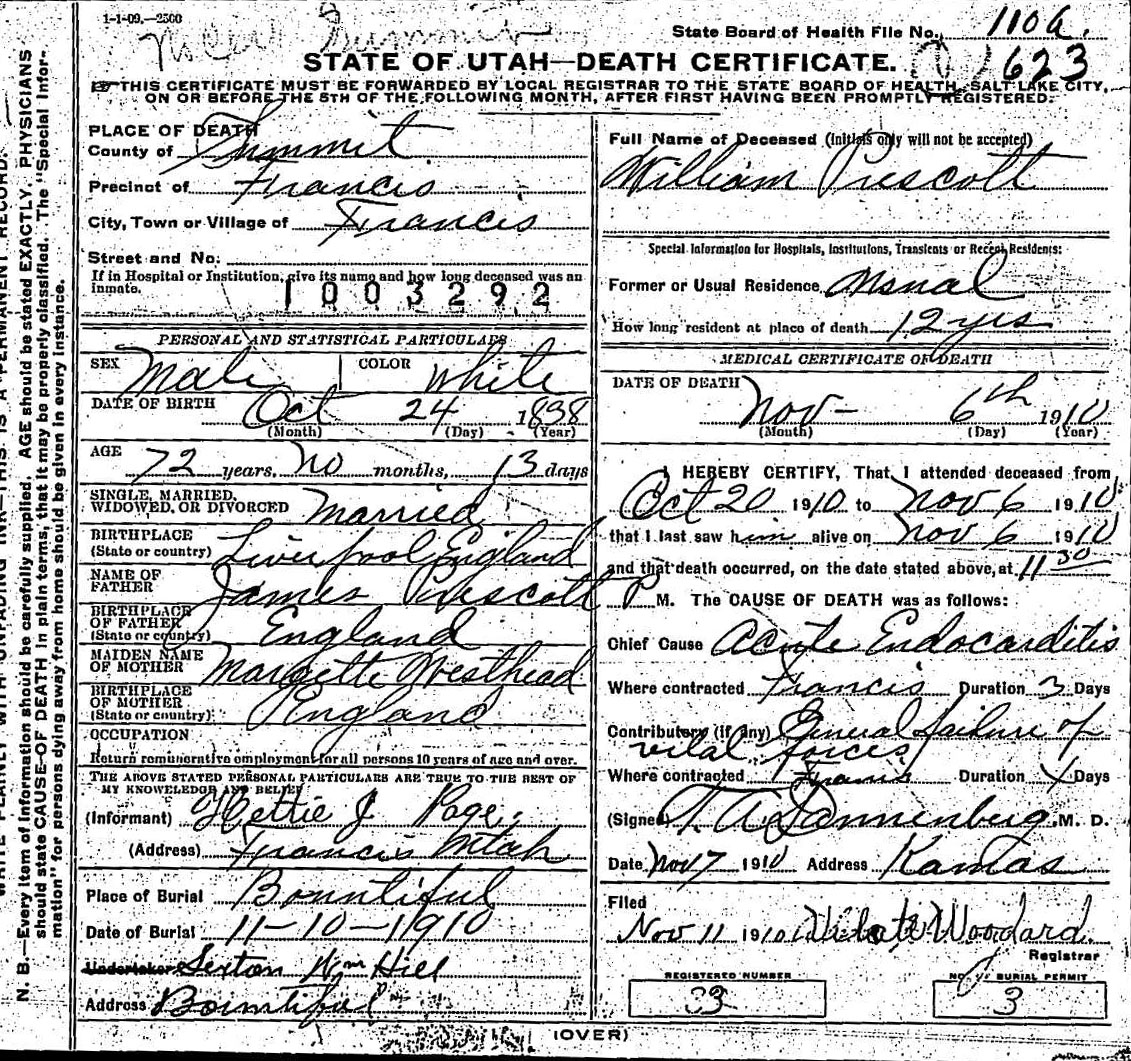 1-1-09.—2500
Summit
State Board of Health File No. 110a.
STATE OF UTAH—DEATH CERTIFICATE. 1623
THIS CERTIFICATE MUST BE FORWARDED BY LOCAL REGISTRAR TO THE STATE BOARD OF HEALTH, SALT LAKE CITY,
ON OR BEFORE THE 5TH OF THE FOLLOWING MONTH, AFTER FIRST HAVING BEEN PROMPTLY REGISTERED.
PLACE OF DEATH
County of Summit.
Precinct of Francis
City, Town or Village of Francis
Street and No.
If in Hospital or Institution, give its name and how long deceased was an
inmate.
1003292
PERSONAL AND STATISTICAL PARTICULARS
SEX Male COLOR White
DATE OF BIRTH Oct 24 1838
(Month) (Day) (Year)
AGE 72 years, No months, 13 days
SINGLE, MARRIED,
WIDOWED, OR DIVORCED Married
BIRTHPLACE
(State or country) Liverpool England
NAME OF
FATHER James Prescott
BIRTHPLACE
OF FATHER
(State or country) England
MAIDEN NAME
OF MOTHER Margette Westhead
BIRTHPLACE
OF MOTHER
(State or country) England
OCCUPATION
Return remunerative employment for all persons 10 years of age and over.
THE ABOVE STATED PERSONAL PARTICULARS ARE TRUE TO THE BEST OF
MY KNOWLEDGE AND BELIEF
(Informant) Hettie J Page.
(Address) Francis Utah
Place of Burial Bountiful
Date of Burial 11-10-1910
Undertaker Sexton Wm Hill
Address Bountiful
Full Name of Deceased (Initials only will not be accepted)
William Prescott
Special Information for Hospitals, Institutions, Transients or Recent Residents:
Former or Usual Residence Usual
How long resident at place of death 12 yrs
MEDICAL CERTIFICATE OF DEATH
DATE OF DEATH Nov- 6th 1910
(Month) (Day) (Year)
I HEREBY CERTIFY, That I attended deceased from
Oct 20 1910 to Nov 6 1910
that I last saw him alive on Nov 6 1910
and that death occurred, on the date stated above, at 11 30
P M. The CAUSE OF DEATH was as follows:
Chief Cause Acute Endocarditis
Where contracted Francis Duration 3 Days
Contributory (if any) General failure of
vital forces
Where contracted Francis Duration 4 Days
(Signed) T. A. Dannenberg, M. D.
Date Nov 7 1910 Address Kamas
Filed
Nov 11 1910 Woodard.
Registrar
REGISTERED NUMBER
33
NO. OF BURIAL PERMIT
3
(OVER)
N. B.—Every item of information should be carefully supplied. AGE should be stated EXACTLY. PHYSICIANS
should state CAUSE OF DEATH in plain terms, that it may be properly classified. The "Special Infor-
mation" for persons dying away from home should be given in every instance.